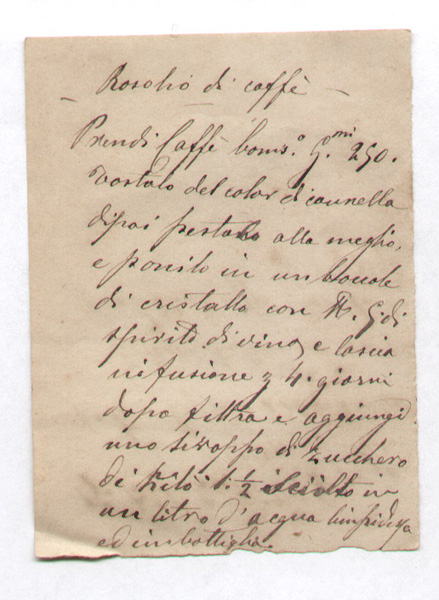 Rosolio di caffè
Prendi Caffè bonis.º G.mi 250.
tostalo del color di cannella
dipoi pestalo alla meglio,
e ponilo in un boccale
di cristallo con
spirito di vino, e lascia
infusione 4. giorni
dopo filtra e aggiungi
uno siroppo di zucchero
di kilò 1. ½ sciolto in
un litro d'acqua limpidissa
ed imbottiglia.